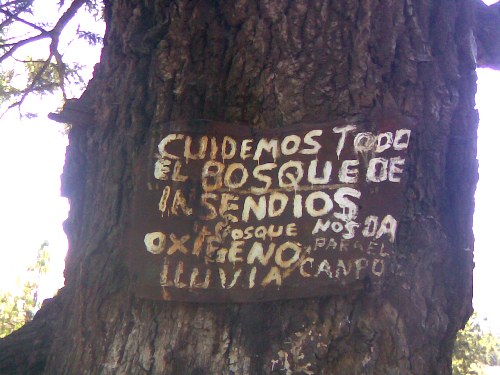 CUIDEMOS TODO
EL BOSQUE DE
INSENDIOS
BOSQUE NOS DA
OXIGENO PARA EL
LLUVIA CANPO